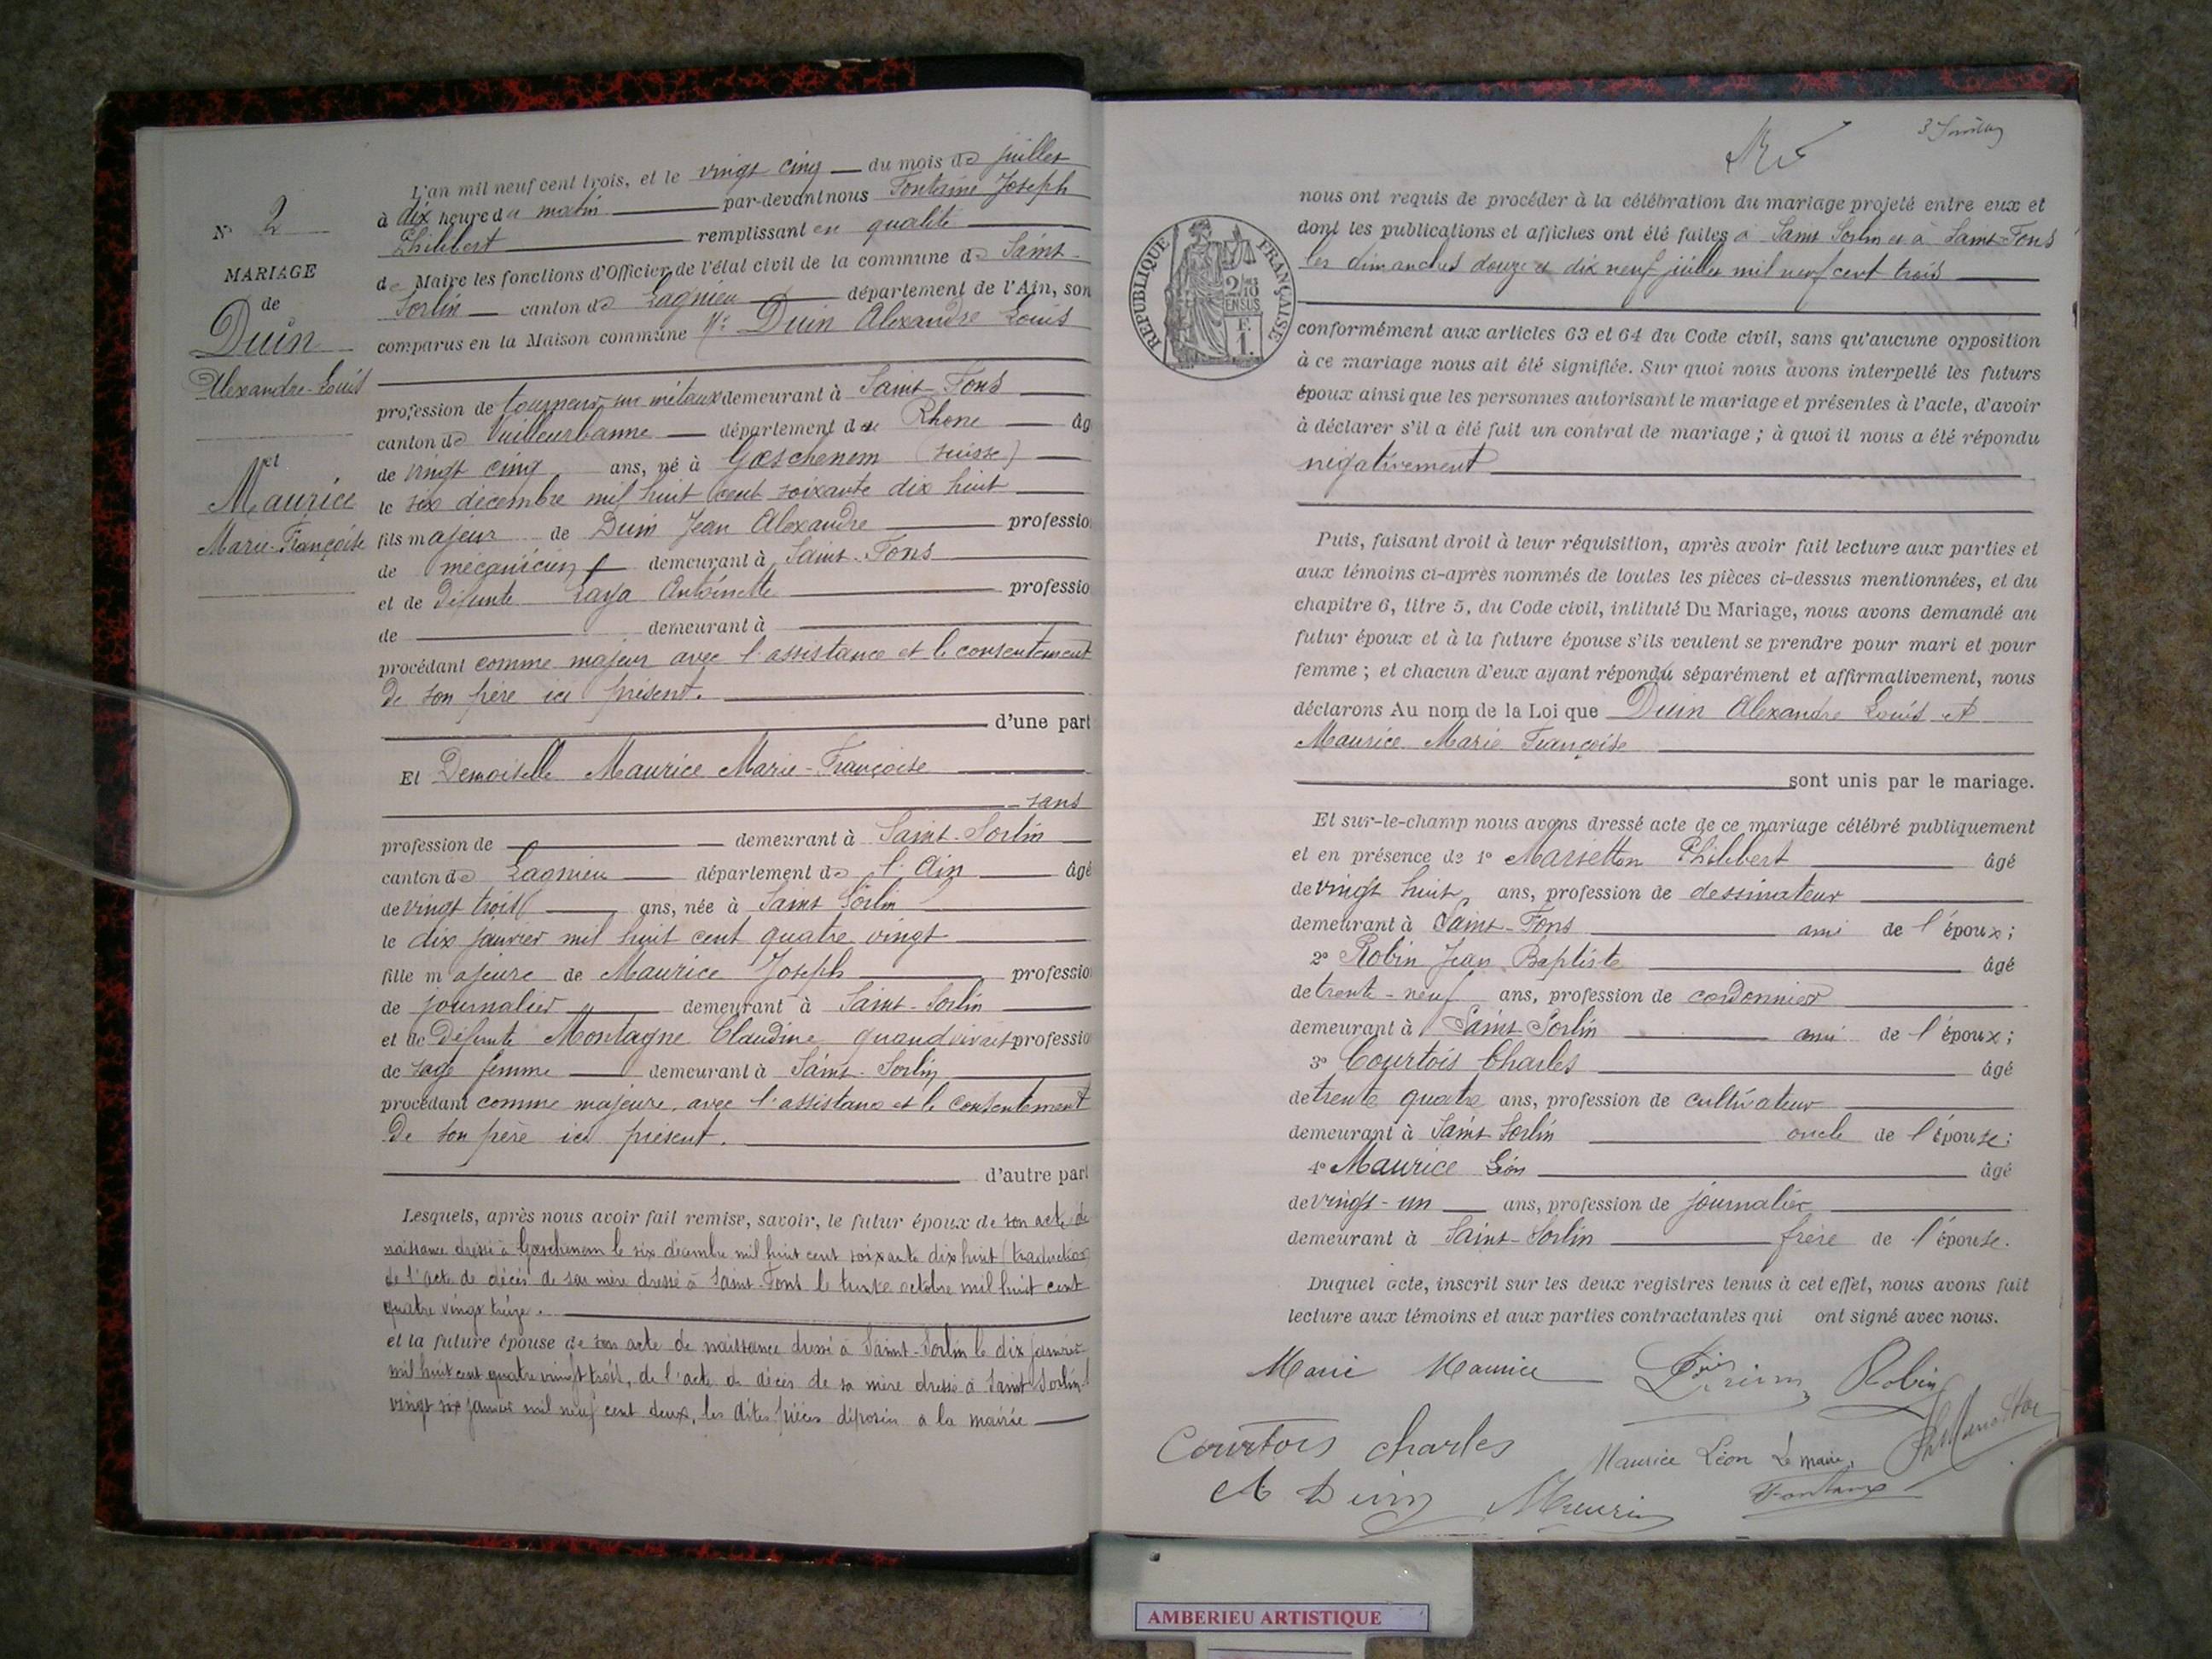 N° 2
MARIAGE
de
Duin
Alexandre-Louis
et
Maurice
Marie-Françoise
L'an mil neuf cent trois, et le vingt cinq du mois de juillet
à dix heure du matin par-devant nous Fontaine Joseph
Philibert remplissant en qualité
de Maire les fonctions d'Officier de l'état civil de la commune de Saint-
Sorlin canton de Lagnieu département de l'Ain, son
comparus en la Maison commune Mr Duin Alexandre Louis
profession de tourneur sur métaux demeurant à Saint-Fons
canton de Villeurbanne département du Rhone âg
de vingt cinq ans, né à Gœschenem (suisse)
le six décembre mil huit cent soixante dix huit
fils majeur de Duin Jean Alexandre professio
de mécanicien demeurant à Saint-Fons
et de défunte Laya Antoinette professio
de demeurant à
procédant comme majeur avec l'assistance et le consentement
de son père ici présent.
d'une part
Et Demoiselle Maurice Marie-Françoise
sans
profession de demeurant à Saint-Sorlin
canton de Lagnieu département de l'Ain âgé
de vingt trois ans, née à Saint Sorlin
le dix janvier mil huit cent quatre vingt
fille majeure de Maurice Joseph professio
de journalier demeurant à Saint-Sorlin
et de défunte Montagne Claudine quand vivait professio
de sage femme demeurant à Saint-Sorlin
procédant comme majeure, avec l'assistance et le consentement
de son père ici présent.
d'autre part
Lesquels, après nous avoir fait remise, savoir, le futur époux de son acte de
naissance dressé à Gœschenem le six décembre mil huit cent soixante dix huit (traduction
de l'acte de décès de sa mère dressé à Saint-Fons le trente octobre mil huit cent
quatre vingt treize.
et la future épouse de son acte de naissance dressé à Saint-Sorlin le dix janvier
mil huit cent quatre vingt trois, de l'acte de décès de sa mère dressé à Saint Sorlin l
vingt six janvier mil neuf cent deux, les dites pièces déposées à la mairie
RÉPUBLIQUE FRANÇAISE
2/10 EN SUS
F.
1.
nous ont requis de procéder à la célébration du mariage projeté entre eux et
dont les publications et affiches ont été faites à Saint Sorlin et à Saint-Fons
les dimanches douze et dix neuf juillet mil neuf cent trois
conformément aux articles 63 et 64 du Code civil, sans qu'aucune opposition
à ce mariage nous ait été signifiée. Sur quoi nous avons interpellé les futurs
époux ainsi que les personnes autorisant le mariage et présentes à l'acte, d'avoir
à déclarer s'il a été fait un contrat de mariage ; à quoi il nous a été répondu
négativement
Puis, faisant droit à leur réquisition, après avoir fait lecture aux parties et
aux témoins ci-après nommés de toutes les pièces ci-dessus mentionnées, et du
chapitre 6, titre 5, du Code civil, intitulé Du Mariage, nous avons demandé au
futur époux et à la future épouse s'ils veulent se prendre pour mari et pour
femme ; et chacun d'eux ayant répondu séparément et affirmativement, nous
déclarons Au nom de la Loi que Duin Alexandre Louis et
Maurice Marie Françoise
sont unis par le mariage.
Et sur-le-champ nous avons dressé acte de ce mariage célébré publiquement
et en présence de 1° Marietton Philibert âgé
de vingt huit ans, profession de dessinateur
demeurant à Saint-Fons ami de l'époux ;
2° Robin Jean Baptiste âgé
de trente-neuf ans, profession de cordonnier
demeurant à Saint-Sorlin ami de l'époux ;
3° Courtois Charles âgé
de trente quatre ans, profession de cultivateur
demeurant à Saint Sorlin oncle de l'épouse ;
4° Maurice Léon âgé
de vingt-un ans, profession de journalier
demeurant à Saint-Sorlin frère de l'épouse.
Duquel acte, inscrit sur les deux registres tenus à cet effet, nous avons fait
lecture aux témoins et aux parties contractantes qui ont signé avec nous.
Marie Maurice Robin
Courtois charles Maurice Léon Le Maire,
A Duin Maurice Fontaine
AMBERIEU ARTISTIQUE